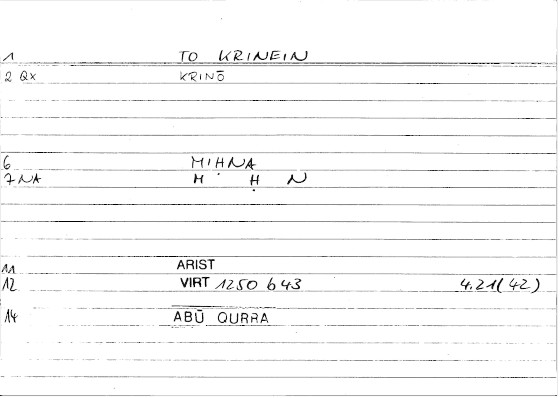 1 TO KRINEIN
2 QX KRINŌ
6 MIḤNA
7 NA M Ḥ N
11 ARIST
12 VIRT 1250 b 43 4.21(42)
14 ABŪ QURRA